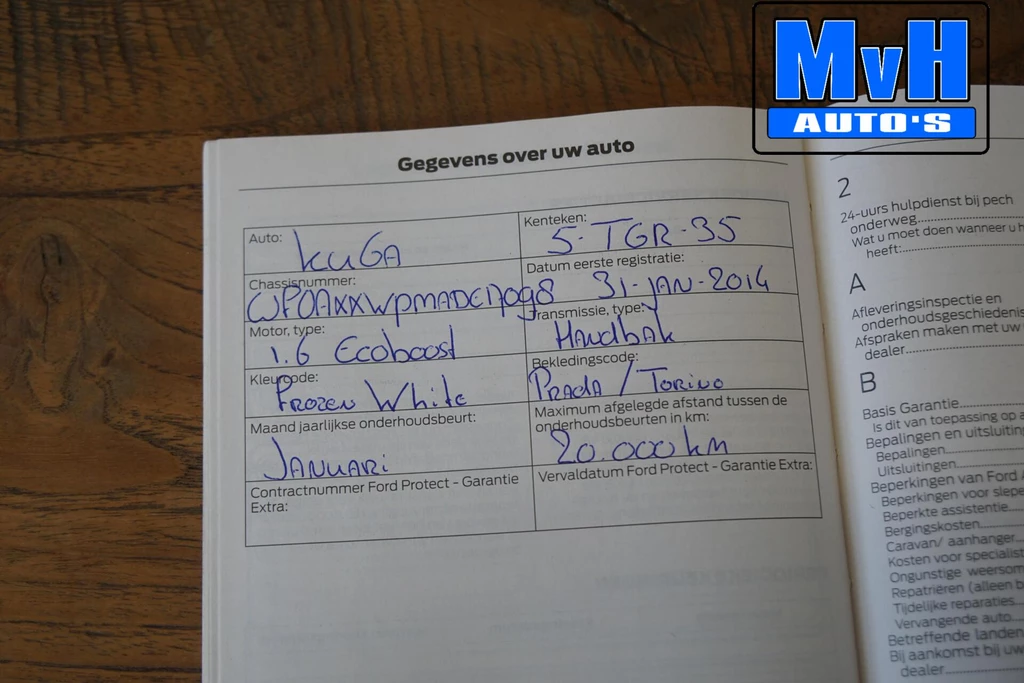 MvH
AUTO'S
Gegevens over uw auto
Auto: KUGA
Kenteken: 5-TGR-35
Chassisnummer:
WF0AXXWPMADE17098
Datum eerste registratie:
31-JAN-2014
Motor, type:
1.6 Ecoboost
Transmissie, type:
Handbak
Kleurcode:
Frozen White
Bekledingscode:
Prada / Torino
Maand jaarlijkse onderhoudsbeurt:
Januari
Maximum afgelegde afstand tussen de
onderhoudsbeurten in km:
20.000 km
Contractnummer Ford Protect - Garantie
Extra:
Vervaldatum Ford Protect - Garantie Extra:
2
24-uurs hulpdienst bij pech
onderweg
Wat u moet doen wanneer u h
heeft:
A
Afleveringsinspectie en
onderhoudsgeschiedenis
Afspraken maken met uw
dealer
B
Basis Garantie
Is dit van toepassing op a
Bepalingen en uitsluitin
Bepalingen
Uitsluitingen
Beperkingen van Ford A
Beperkingen voor slepe
Beperkte assistentie
Bergingskosten
Caravan/ aanhanger
Kosten voor specialist
Ongunstige weersom
Repatriëren (alleen b
Tijdelijke reparaties
Vervangende auto
Betreffende landen
Bij aankomst bij uw
dealer